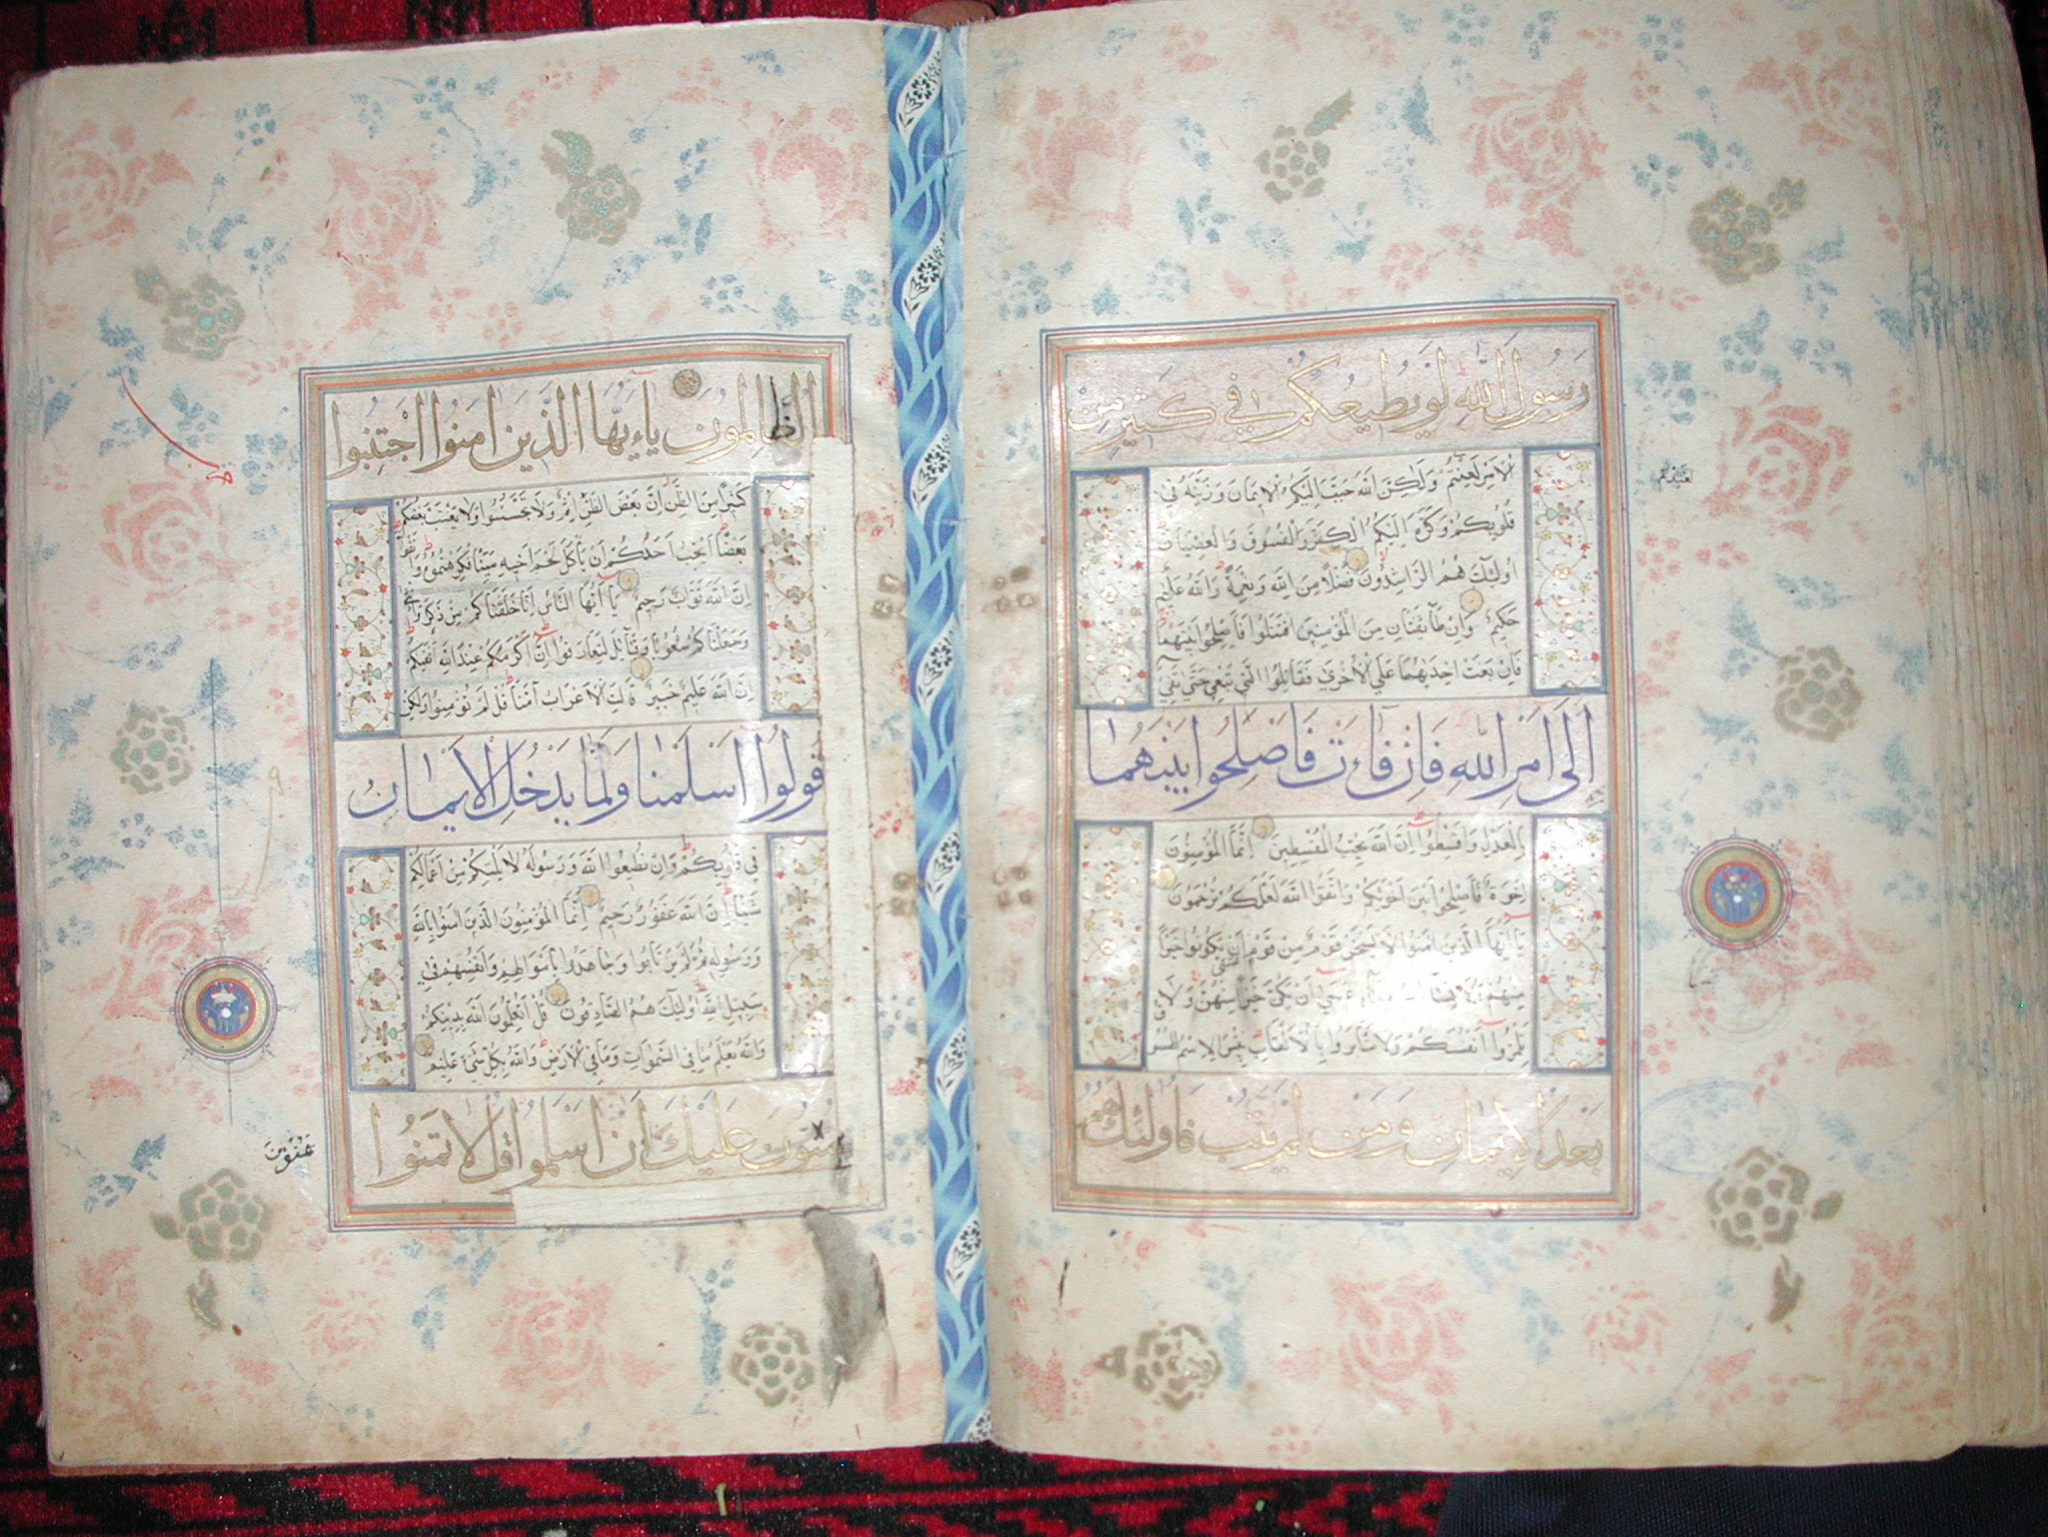 رَسُولَ اللَّهِ لَوْ يُطِيعُكُمْ فِي كَثِيرٍ مِنَ
الْأَمْرِ لَعَنِتُّمْ وَلَكِنَّ اللَّهَ حَبَّبَ إِلَيْكُمُ الْإِيمَانَ وَزَيَّنَهُ فِي
قُلُوبِكُمْ وَكَرَّهَ إِلَيْكُمُ الْكُفْرَ وَالْفُسُوقَ وَالْعِصْيَانَ
أُولَئِكَ هُمُ الرَّاشِدُونَ فَضْلًا مِنَ اللَّهِ وَنِعْمَةً وَاللَّهُ عَلِيمٌ
حَكِيمٌ وَإِنْ طَائِفَتَانِ مِنَ الْمُؤْمِنِينَ اقْتَتَلُوا فَأَصْلِحُوا بَيْنَهُمَا
فَإِنْ بَغَتْ إِحْدَيهُمَا عَلَى الْأُخْرَى فَقَاتِلُوا الَّتِي تَبْغِي حَتَّى تَفِيءَ
إِلَى أَمْرِ اللَّهِ فَإِنْ فَاءَتْ فَأَصْلِحُوا بَيْنَهُمَا
بِالْعَدْلِ وَأَقْسِطُوا إِنَّ اللَّهَ يُحِبُّ الْمُقْسِطِينَ إِنَّمَا الْمُؤْمِنُونَ
إِخْوَةٌ فَأَصْلِحُوا بَيْنَ أَخَوَيْكُمْ وَاتَّقُوا اللَّهَ لَعَلَّكُمْ تُرْحَمُونَ
يَا أَيُّهَا الَّذِينَ آمَنُوا لَا يَسْخَرْ قَوْمٌ مِنْ قَوْمٍ عَسَى أَنْ يَكُونُوا خَيْرًا
مِنْهُمْ وَلَا نِسَاءٌ عَسَى أَنْ يَكُنَّ خَيْرًا مِنْهُنَّ وَلَا
تَلْمِزُوا أَنْفُسَكُمْ وَلَا تَنَابَزُوا بِالْأَلْقَابِ بِئْسَ الِاسْمُ الْفُسُوقُ
بَعْدَ الْإِيمَانِ وَمَنْ لَمْ يَتُبْ فَأُولَئِكَ هُمُ
الظَّالِمُونَ يَاءَيُّهَا الَّذِينَ آمَنُوا اجْتَنِبُوا
كَثِيرًا مِنَ الظَّنِّ إِنَّ بَعْضَ الظَّنِّ إِثْمٌ وَلَا تَجَسَّسُوا وَلَا يَغْتَبْ بَعْضُكُمْ
بَعْضًا أَيُحِبُّ أَحَدُكُمْ أَنْ يَأْكُلَ لَحْمَ أَخِيهِ مَيْتًا فَكَرِهْتُمُوهُ وَاتَّقُوا
إِنَّ اللَّهَ تَوَّابٌ رَحِيمٌ يَا أَيُّهَا النَّاسُ إِنَّا خَلَقْنَاكُمْ مِنْ ذَكَرٍ وَأُنْثَى
وَجَعَلْنَاكُمْ شُعُوبًا وَقَبَائِلَ لِتَعَارَفُوا إِنَّ أَكْرَمَكُمْ عِنْدَ اللَّهِ أَتْقَيكُمْ
إِنَّ اللَّهَ عَلِيمٌ خَبِيرٌ قَالَتِ الْأَعْرَابُ آمَنَّا قُلْ لَمْ تُؤْمِنُوا وَلَكِنْ
قُولُوا أَسْلَمْنَا وَلَمَّا يَدْخُلِ الْإِيمَانُ
فِي قُلُوبِكُمْ وَإِنْ تُطِيعُوا اللَّهَ وَرَسُولَهُ لَا يَلِتْكُمْ مِنْ أَعْمَالِكُمْ
شَيْئًا إِنَّ اللَّهَ غَفُورٌ رَحِيمٌ إِنَّمَا الْمُؤْمِنُونَ الَّذِينَ آمَنُوا بِاللَّهِ
وَرَسُولِهِ ثُمَّ لَمْ يَرْتَابُوا وَجَاهَدُوا بِأَمْوَالِهِمْ وَأَنْفُسِهِمْ فِي
سَبِيلِ اللَّهِ أُولَئِكَ هُمُ الصَّادِقُونَ قُلْ أَتُعَلِّمُونَ اللَّهَ بِدِينِكُمْ
وَاللَّهُ يَعْلَمُ مَا فِي السَّمَوَاتِ وَمَا فِي الْأَرْضِ وَاللَّهُ بِكُلِّ شَيْءٍ عَلِيمٌ
يَمُنُّونَ عَلَيْكَ أَنْ أَسْلَمُوا قُلْ لَا تَمُنُّوا